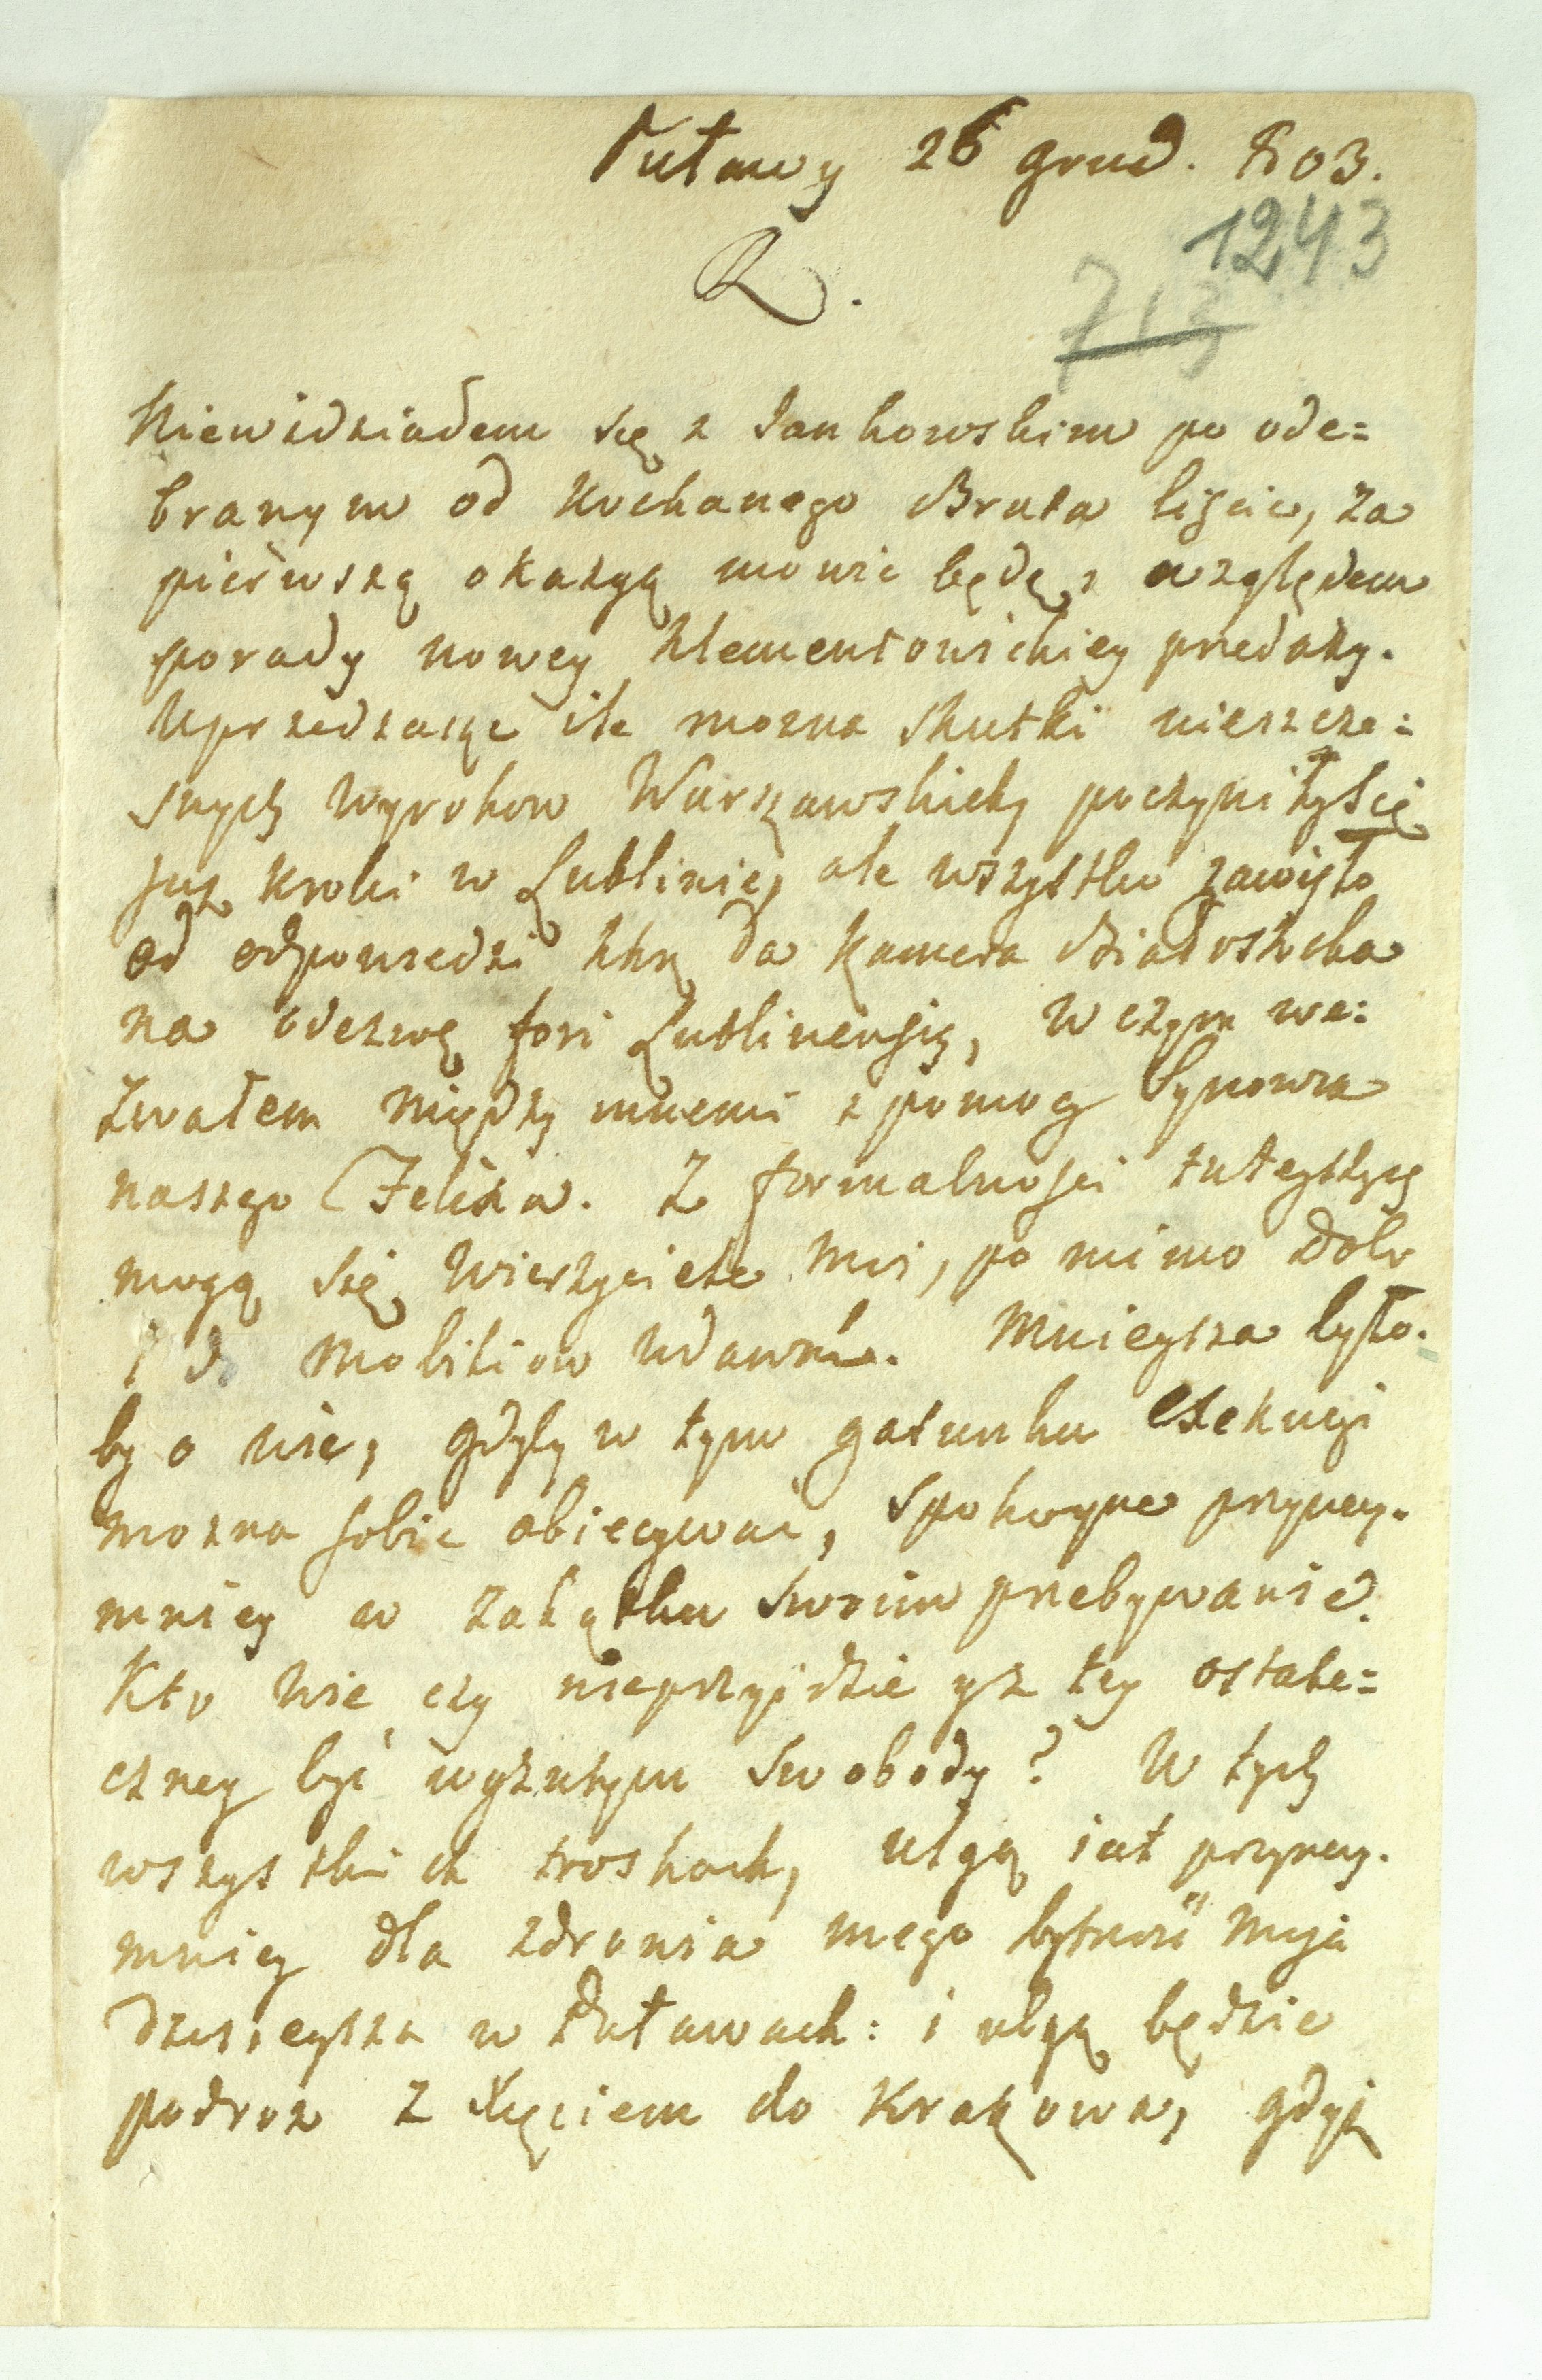 Puławy 26 grud. 803.
1243
R.
713
Niewidziałem się z Jankowskim po ode=
branym od Kochanego Brata liscie, za
pierwszą okazyą mowic będę, względem
porady nowey Klementowickiey przedaży.
Uprzedzaiąc ile mozna skutki nieszczę=
snych wyrokow Warszawskich poczyniły się
juz kroki w Lublinie, ale wszystko zawisło
od odpowiedzi
na odezwę fori Lublinensis, w czym we=
zwałem między innemi z pomog Synowca
naszego Felixa. Z formalnosci tuteyszych
mogą się wierzyciele moi, po mimo dobr
i do mobiliow udawać. Mnieysza było-
by o nie, gdyby w tym gatunku exekucyi
mozna sobie obiecywać, spokoyne przyney-
mniey w zakątku swoim przebywanie.
Kto wie czy nieprzyidzie y z tey ostate=
czney być wyzutym swobody? W tych
wszystkich troskach, ulgą iest przyney-
mniey dla zdrowia mego bytność moja
dzisieysza w Puławach: i ulgą będzie
podroz z Xięciem do Krakowa, gdyż